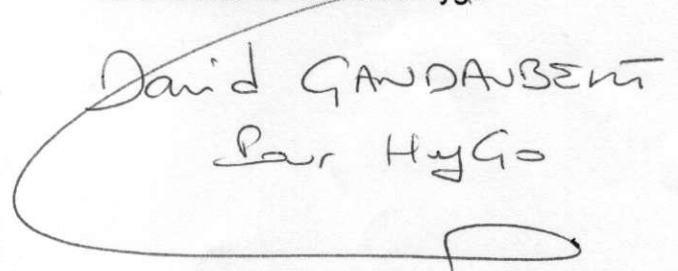 David GANDAUBERT
Pour HyGo